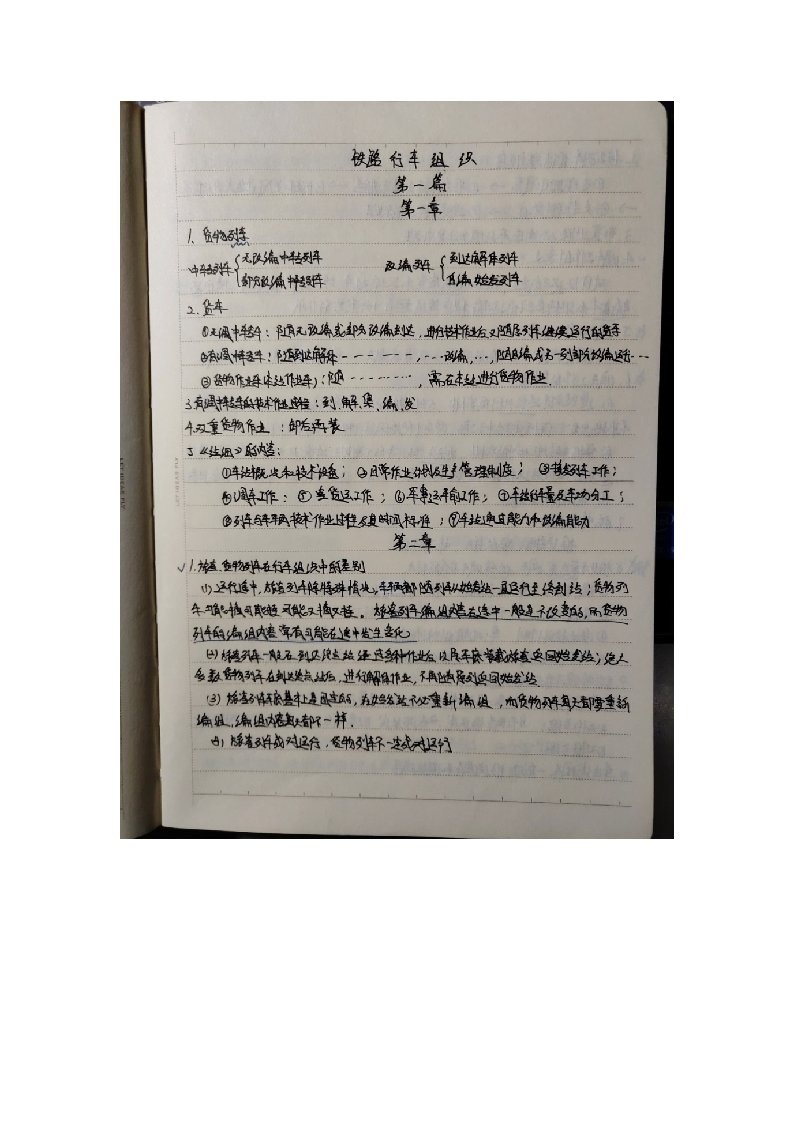 铁路行车组织
第一篇
第一章
1. 货物列车
中转列车 { 无改编中转列车 部分改编中转列车 改编列车 { 到达解体列车 自编始发列车
2. 货车
①无调中转车：随无改编或部分改编到达，进行技术作业后又随原列车继续运行的货车
②有调中转车：随到达解体------，---改编…，随自编或另一列部分改编运行…
③货物作业车(本站作业车)：随---------，需在本站进行货物作业
3. 有调中转车的技术作业过程：到、解、集、编、发
4. 双重货物作业：卸后再装
5.《站细》的内容：
①车站概况和技术设备；②日常作业计划及生产管理制度；③接发列车工作；
④调车工作；⑤客货运工作；⑥军事运输工作；⑦车站作业量及车场分工；
⑧列车与车辆技术作业过程及其时间标准；⑨车站通过能力和改编能力
第二章
√1. 旅客、货物列车在行车组织中的差别
(1) 运行途中，旅客列车除特殊情况，车辆都随列车从始发站一直运行至终到站；货物列
车可能摘可能挂可能又摘又挂。旅客列车编组内容在途中一般是不改变的，而货物
列车的编组内容常有可能在途中发生变化。
(2) 旅客列车一般在到达终点站经过各种作业后以原车底载旅客返回始发站；绝大
多数货物列车在到达终点站后，进行解体作业，不再随原列返回始发站
(3) 旅客列车车底基本上是固定的，在始发站不必重新编组，而货物列车每天都需重新
编组，编组内容每天都不一样.
(4) 旅客列车成对运行，货物列车不一定成对运行